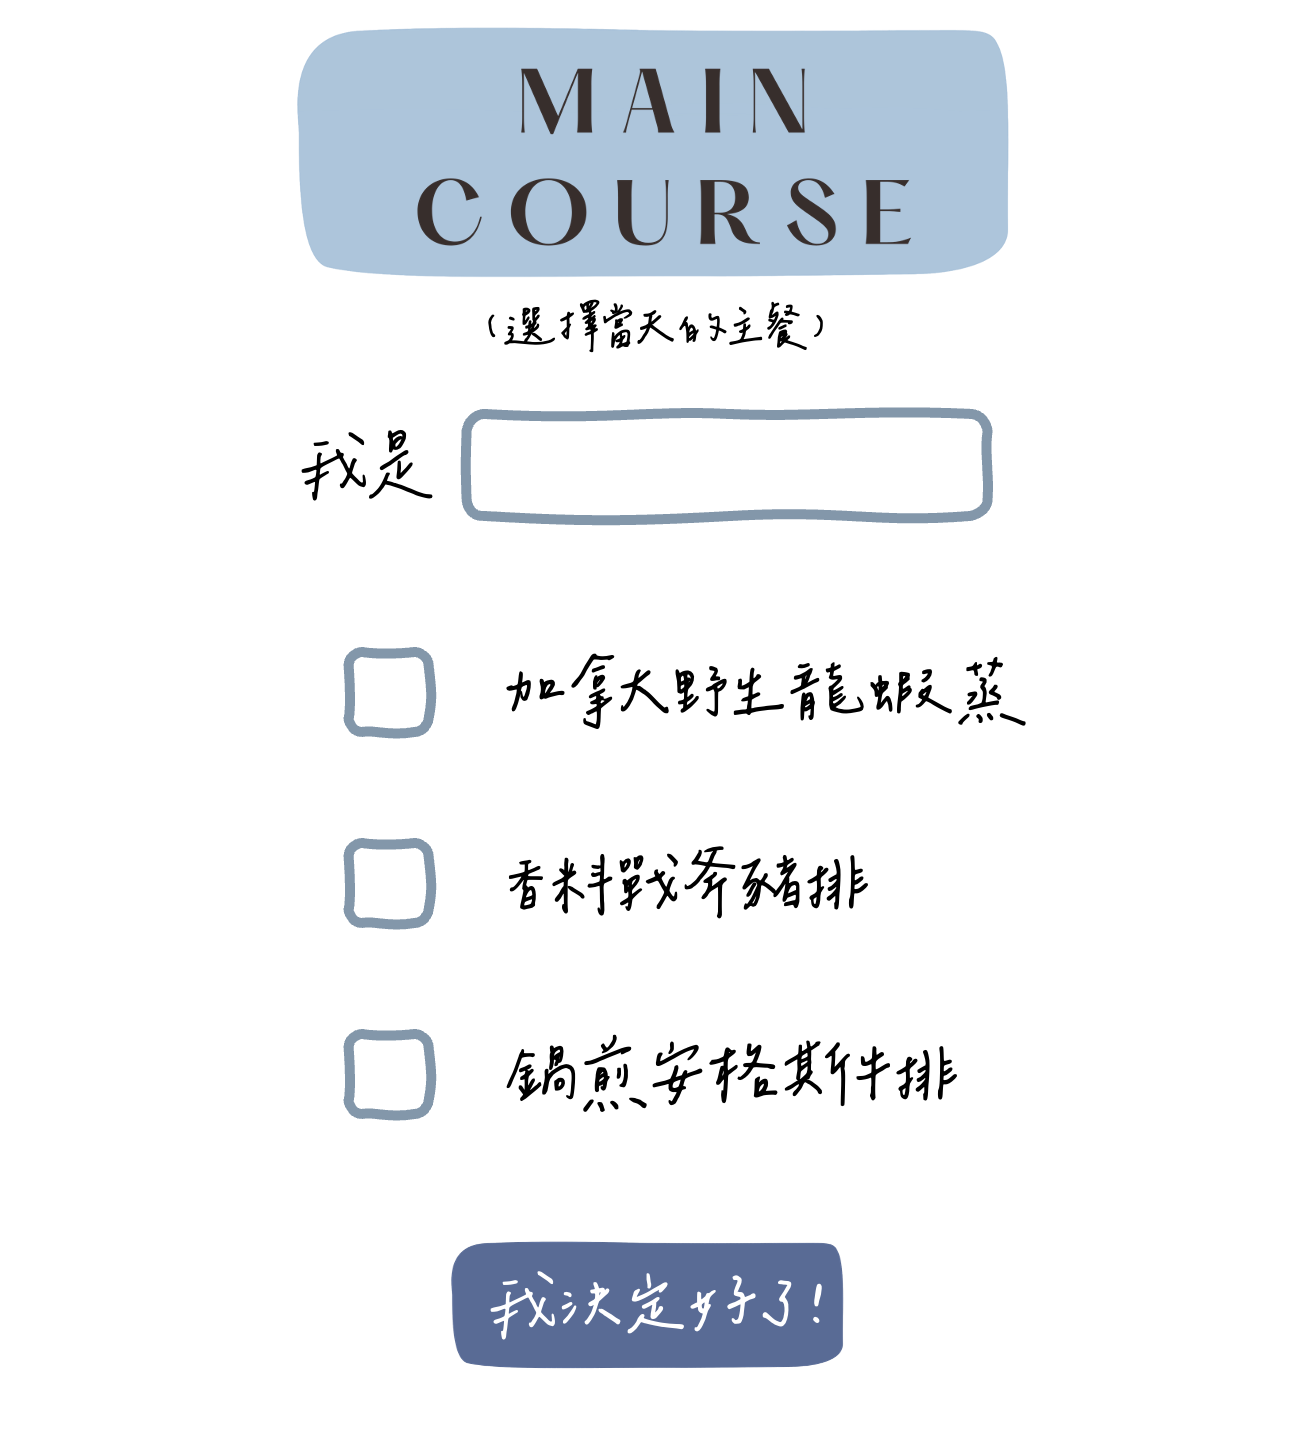 MAIN
COURSE
(選擇當天的主餐)
我是
加拿大野生龍蝦蒸
香料戰斧豬排
鍋煎安格斯牛排
我決定好了!